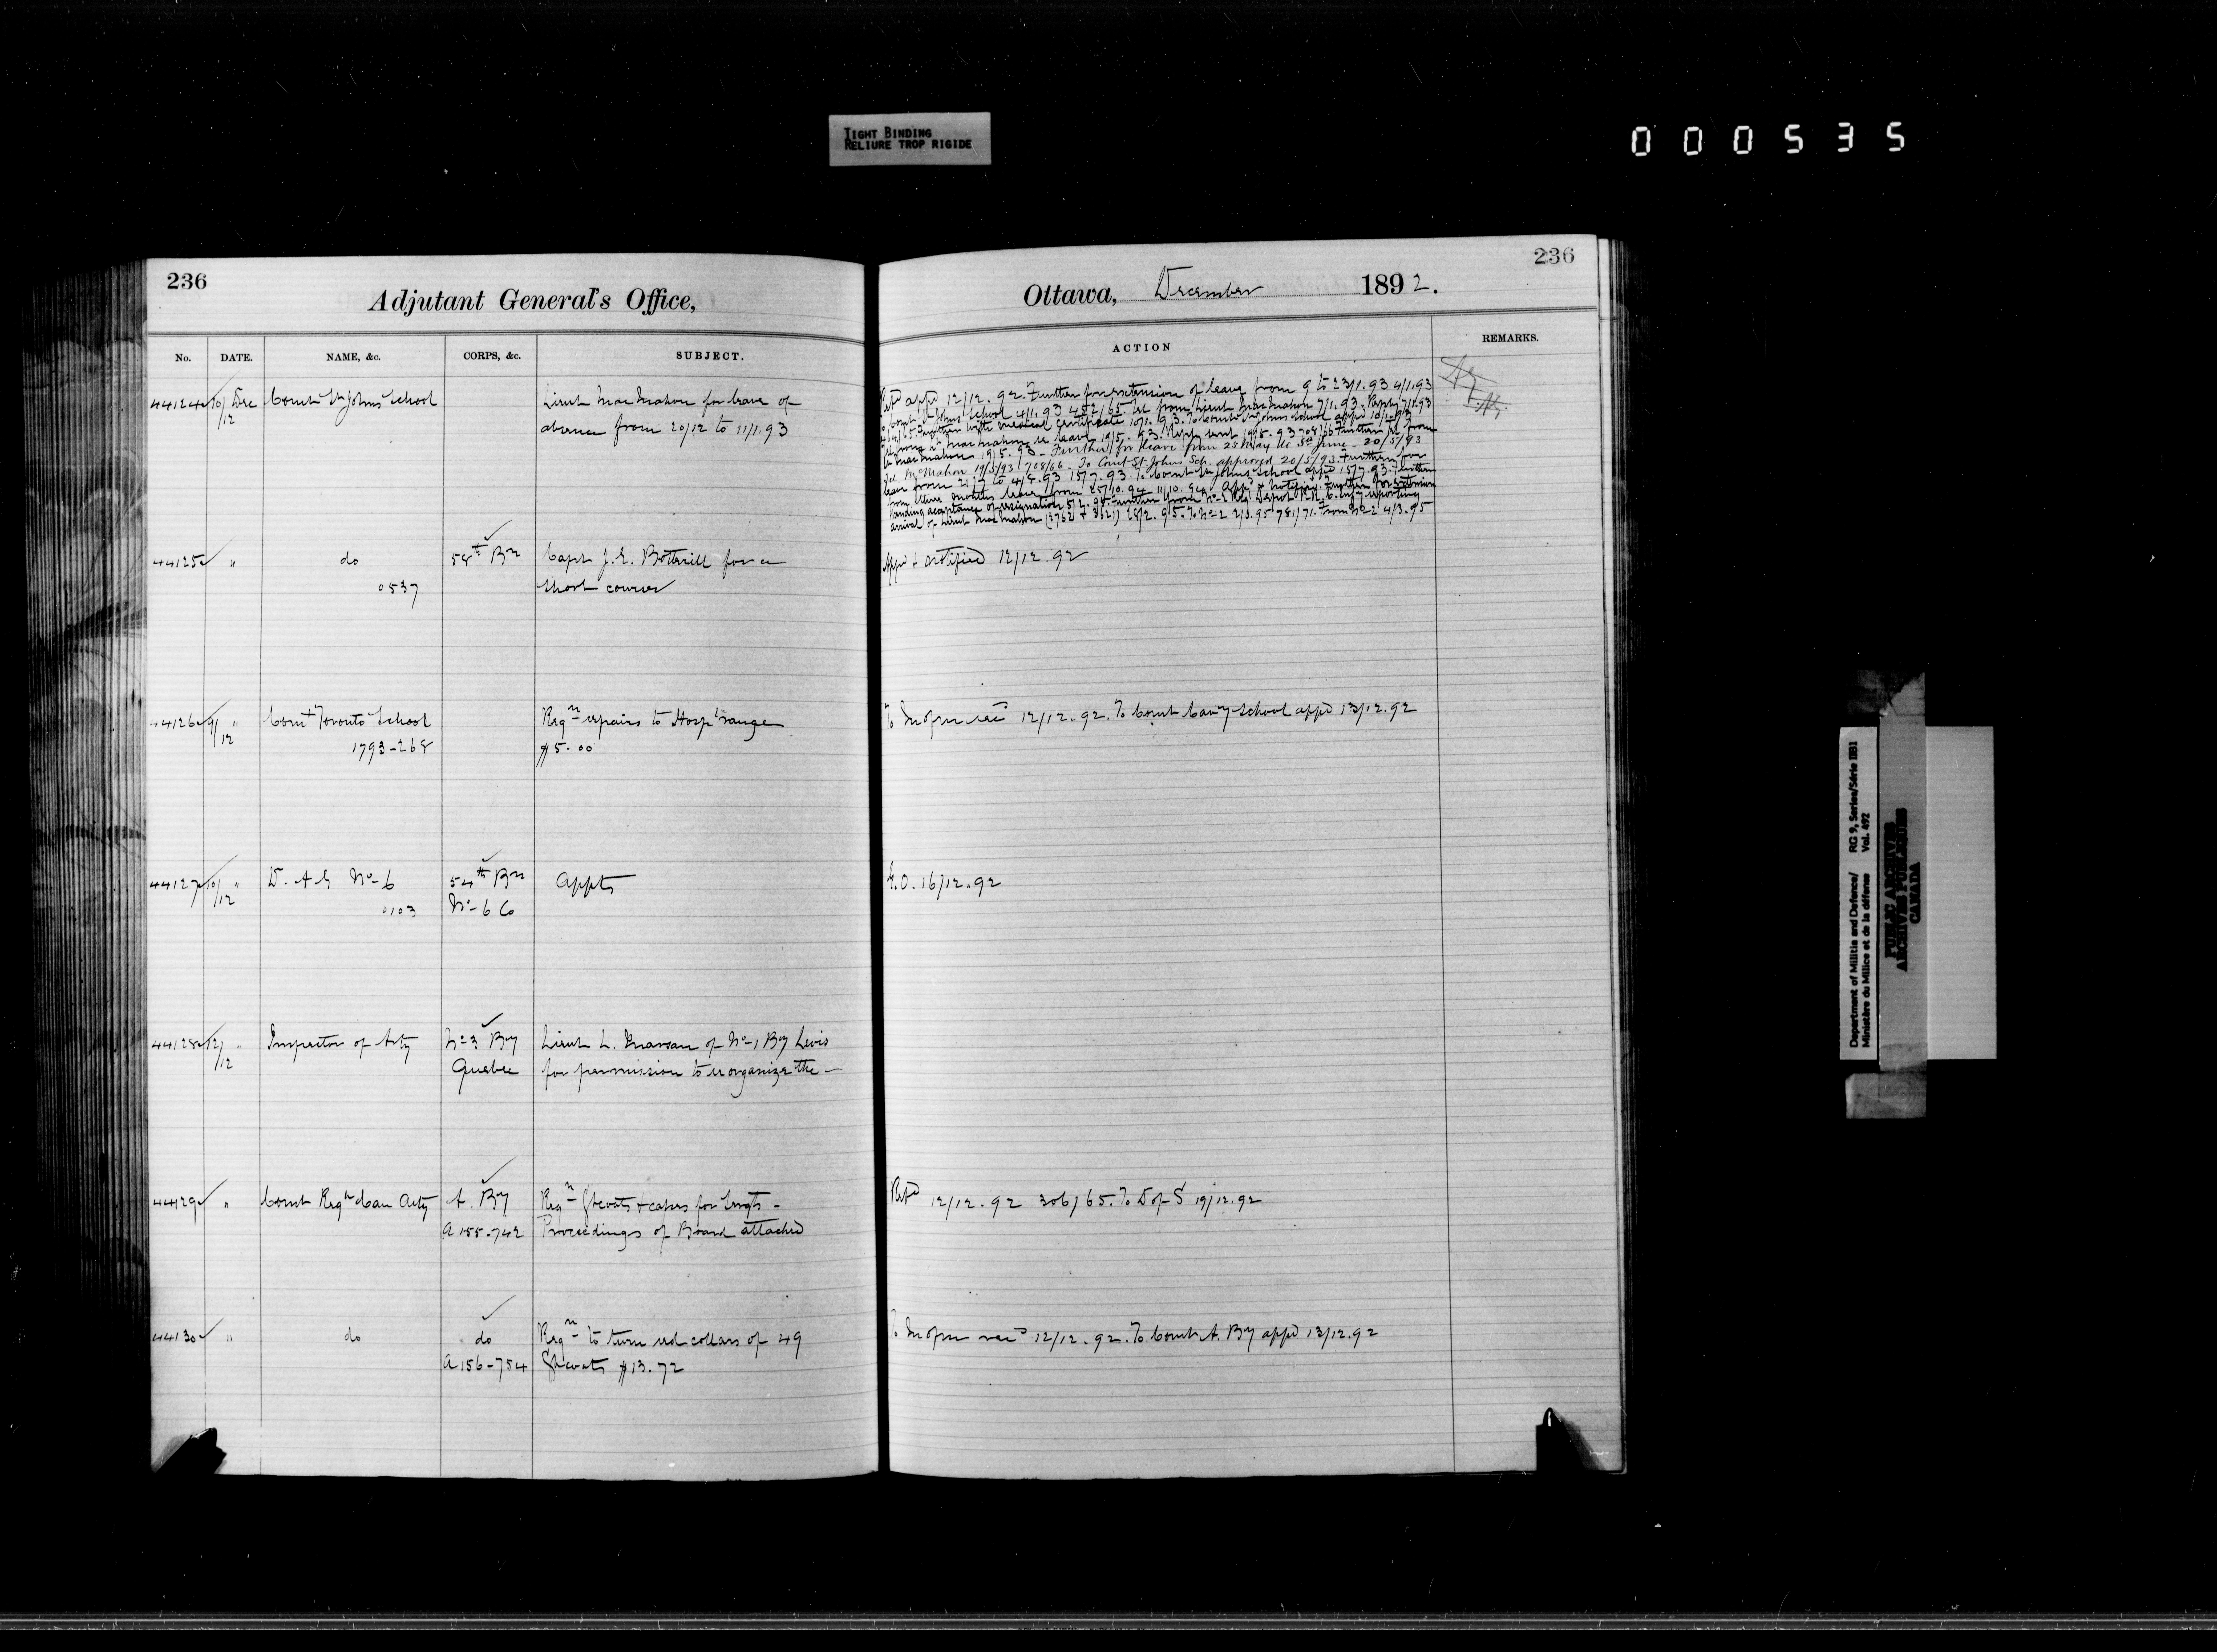 TIGHT BINDING
RELIURE TROP RIGIDE
000535
236
Adjutant General's Office,
No. DATE. NAME, &c. CORPS, &c. SUBJECT.
44124 10/12 Dec Comdt St Johns School Lieut MacMahon for leave of
absence from 20/12 to 11/1.93
44125 " do 58th Bn Capt J.E. Botterill for a
0537 short course
44126 9/12 " Comdt Toronto School Reqn repairs to Hosp range
1793-268 $5.00
44127 10/12 " D.A.G No 6 54th Bn Appts
0103 No 6 Co
44128 12/12 " Inspector of Arty No 3 By Lieut L. of No 1 By Levis
Quebec for permission to reorganize the —
44129 " Comdt Regt Can Arty A. By Reqn Gtcoats + capes for Sergts -
A155-742 Proceedings of Board attached
44130 " do do Reqn to turn red collars of 49
A156-754 Gtcoats $13.72
236
Ottawa, December 1892.
ACTION REMARKS.
appd 12/12.92. Further for extension of leave from 9 to 23/1.93 4/1.93
School 4/1.93 452/65. from Lieut MacMahon 7/1.93. Reply 7/1.93
Further with medical certificate 10/1.93. To Comdt St Johns School appd 10/1.93
MacMahon leave 19/5.93. Reply sent 19/5.93 708/66 Further from
MacMahon 19/5.93 - Further for leave from 25 May to 5th June - 20/5/93
McMahon 19/5/93 708/66 - To Comdt St. Johns Sch. approved 20/5/93. Further for
leave from 21/7 to 4/8.93 15/7.93. To Comdt St Johns School appd 15/7.93. Further
from leave from 25/10.94 11/10.94 Appd + notified. Further for extension
pending acceptance of resignation 5/2.95. Further from No 2 Regl Depot R.R.C. Infy reporting
arrival of Lieut MacMahon (3762 + 3621) 28/2.95. To No 2 2/3.95 781/71. From No 2 4/3.95
Appd + notified 12/12.92
To 12/12.92. To Comdt Cavy School appd 13/12.92
G.O. 16/12.92
Repd 12/12.92 306/65. To D of S 19/12.92
To 12/12.92. To Comdt A. By appd 13/12.92
Department of Militia and Defence/ RG 9, Series/Série IIB1
Ministère du Milice et de la défense Vol. 492
PUBLIC ARCHIVES
ARCHIVES PUBLIQUES
CANADA